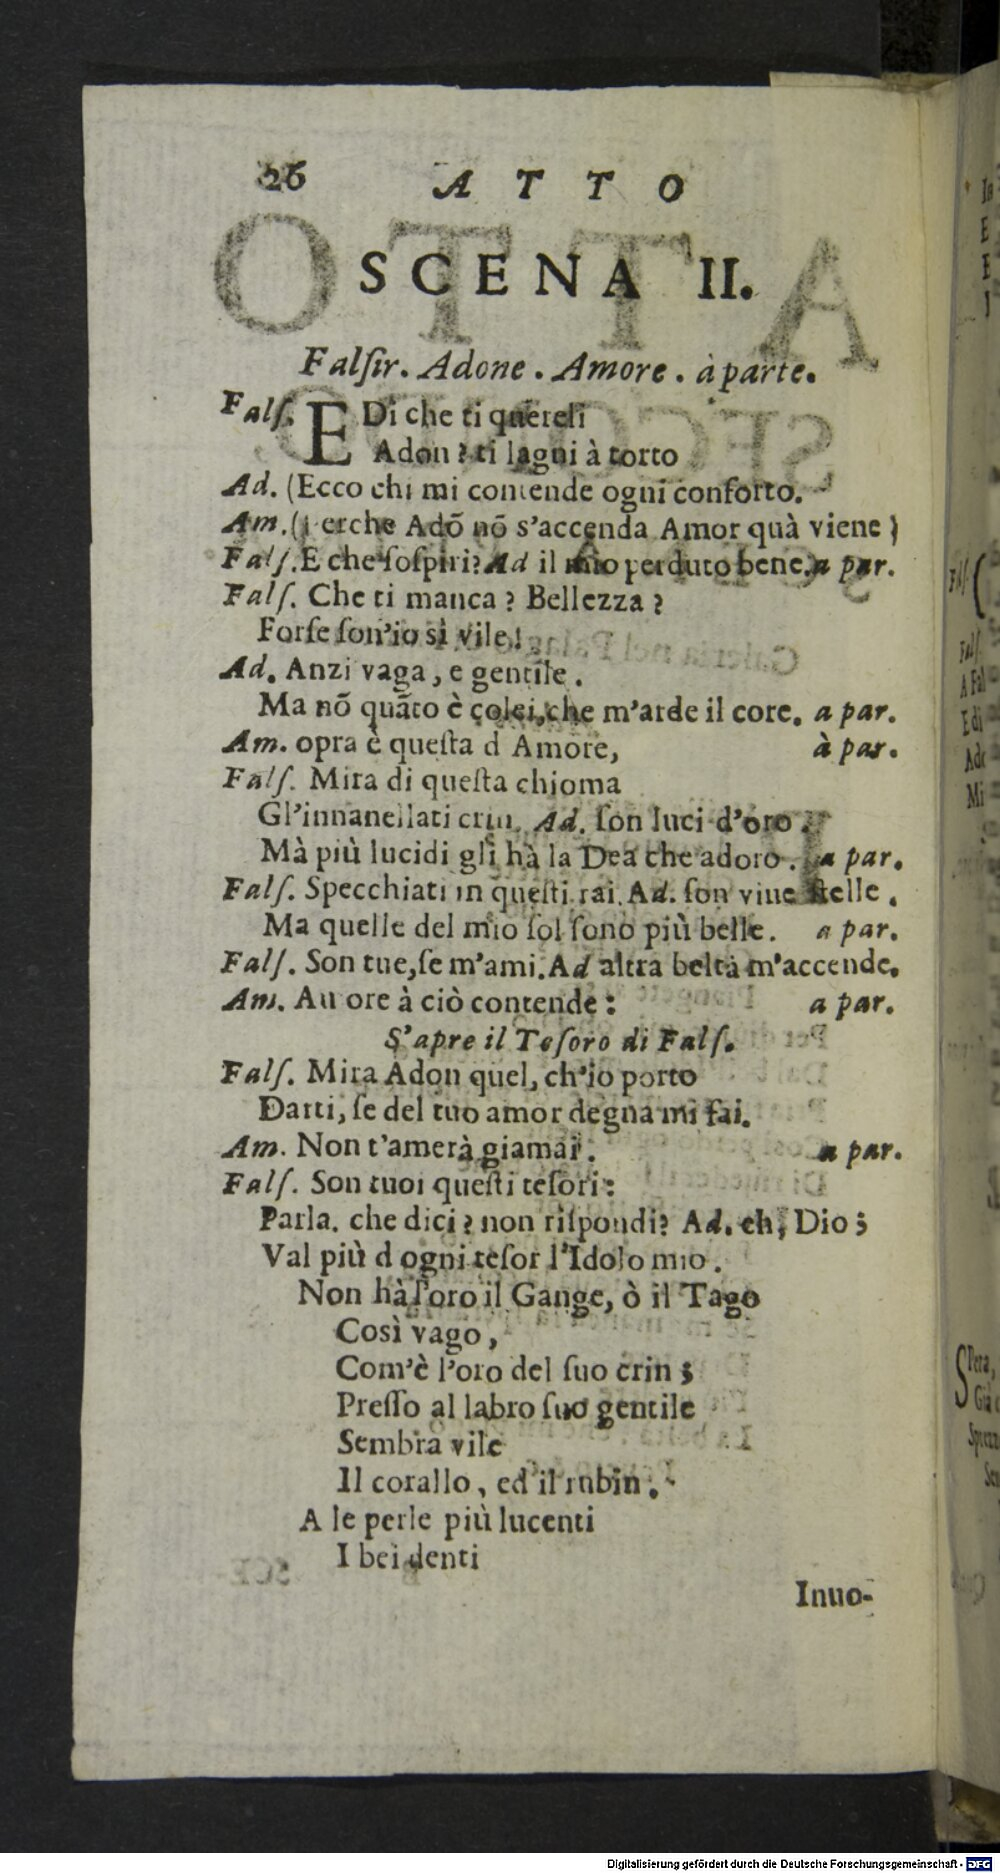 26 ATTO
SCENA II.
Falſir. Adone. Amore. à parte.
Falſ. E Di che ti quereli
Adon? ti lagni à torto
Ad. (Ecco chi mi contende ogni conforto.
Am. (Perche Adõ nõ s'accenda Amor quà viene)
Falſ. E che ſoſpiri? Ad il mio perduto bene. a par.
Falſ. Che ti manca? Bellezza?
Forſe ſon'io sì vile!
Ad. Anzi vaga, e gentile.
Ma nõ quãto è colei, che m'arde il core. a par.
Am. opra è queſta d Amore, à par.
Falſ. Mira di queſta chioma
Gl'innanellati crin. Ad. ſon luci d'oro.
Mà più lucidi gli hà la Dea che adoro. a par.
Falſ. Specchiati in queſti rai. Ad. ſon viue ſtelle.
Ma quelle del mio ſol ſono più belle. a par.
Falſ. Son tue, ſe m'ami. Ad altra beltà m'accende.
Am. Amore à ciò contende: a par.
S'apre il Teſoro di Falſ.
Falſ. Mira Adon quel, ch'io porto
Darti, ſe del tuo amor degna mi fai.
Am. Non t'amerà giamai. a par.
Falſ. Son tuoi queſti teſori:
Parla. che dici? non riſpondi? Ad. eh, Dio;
Val più d ogni teſor l'Idolo mio.
Non hà l'oro il Gange, ò il Tago
Così vago,
Com'è l'oro del ſuo crin;
Preſſo al labro ſuo gentile
Sembra vile
Il corallo, ed il rubin.
A le perle più lucenti
I bei denti
Inuo-
Digitalisierung gefördert durch die Deutsche Forschungsgemeinschaft - DFG